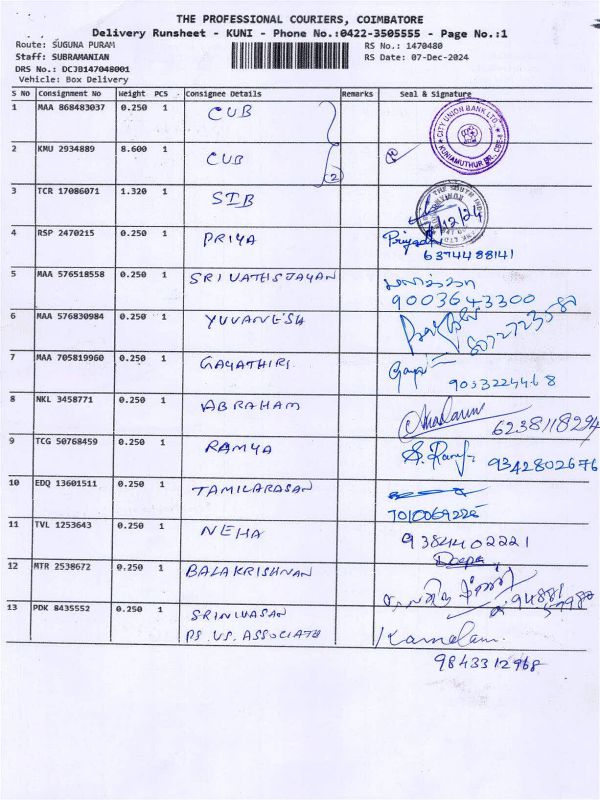 THE PROFESSIONAL COURIERS, COIMBATORE
Delivery Runsheet - KUNI - Phone No.:0422-3505555 - Page No.:1
Route: SUGUNA PURAM
RS No.: 1470480
Staff: SUBRAMANIAN
RS Date: 07-Dec-2024
DRS No.: DCJB147048001
Vehicle: Box Delivery
S No Consignment No Weight PCS Consignee Details Remarks Seal & Signature
1 MAA 868483037 0.250 1 CUB
CITY UNION BANK LTD.
KUNIAMUTHUR BR.
2 KMU 2934889 8.600 1 CUB
2
3 TCR 17086071 1.320 1 SIB
THE SOUTH IND
4 RSP 2470215 0.250 1 PRIYA
6374488141
5 MAA 576518558 0.250 1 SRIVATHSJAYAN
9003643300
6 MAA 576830984 0.250 1 YUVANESH
7 MAA 705819960 0.250 1 GAYATHIRI
9053224468
8 NKL 3458771 0.250 1 ABRAHAM
6238118294
9 TCG 50768459 0.250 1 RAMYA
9342802676
10 EDQ 13601511 0.250 1 TAMILARASAN
7010069225
11 TVL 1253643 0.250 1 NEHA
9384402221
Deepa
12 MTR 2538672 0.250 1 BALAKRISHNAN
13 PDK 8435552 0.250 1 SRINIVASAN
PS. VS. ASSOCIATE
9843312968